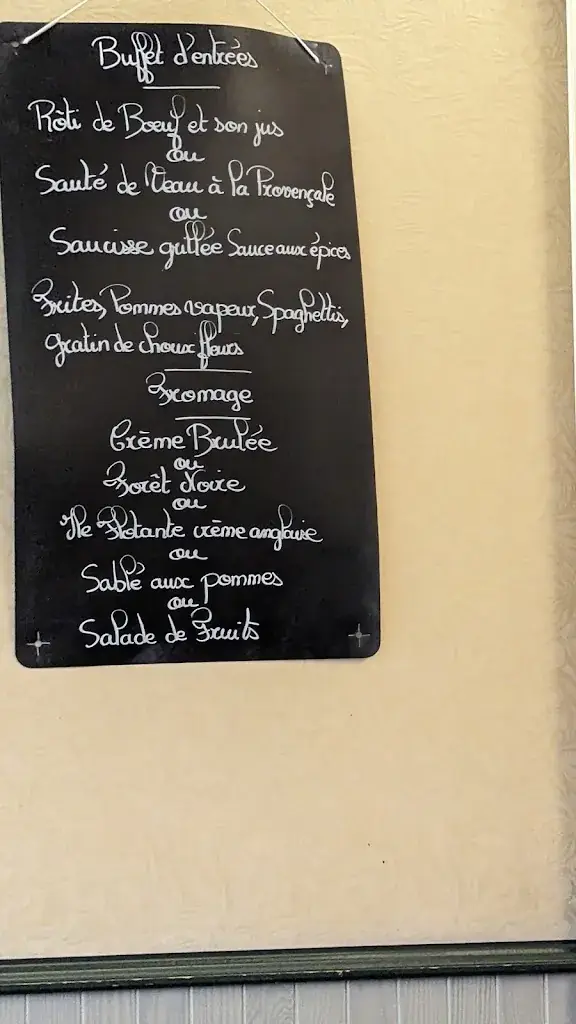 Buffet d'entrées
Rôti de Boeuf et son jus
ou
Sauté de Veau à la Provençale
ou
Saucisse grillée Sauce aux épices
Frites, Pommes vapeur, Spaghettis,
gratin de choux fleurs
Fromage
Crème Brulée
ou
Forêt Noire
ou
Ile Flotante crème anglaise
ou
Sablé aux pommes
ou
Salade de Fruits